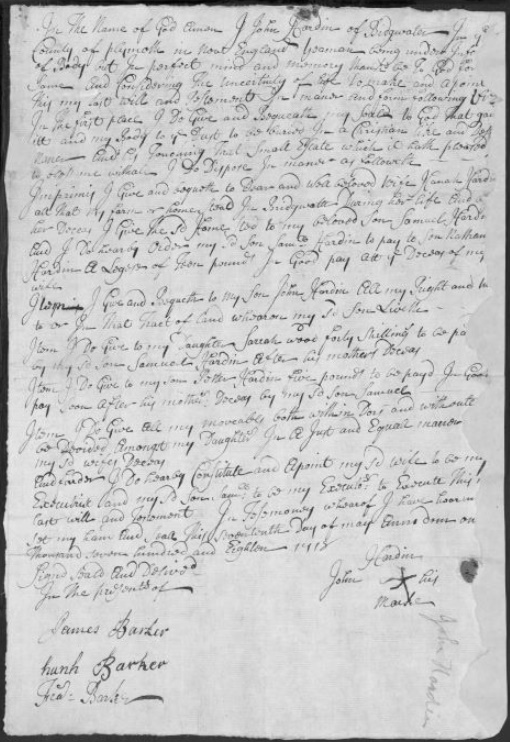 In The Name of God Amen I John Hardin of Bridgwater In ye
County of plymoth in New England yeoman being under
of Body but In perfect mind and memory thanks be To God for
same And Considering The uncertinty of life Do make and apoint
This my last will and Testement In maner and form following Viz
In the first place I Do Give and Bequeath my Soule to God that gave
itt and my Body to ye Dust to be buried In a Christian like and
maner and as Touching that Small Estate which it hath pleased
to bless me withall I Do Dispose In maner as followeth
Imprimis I Give and bequeth to Dear and well beloved wife Hanah Hardin
all that my farm or homested In Bridgwater During her life and a
her Deceas I Give the Sd homested to my beloved Son Samuel Hardin
And I Do hearby Order my Sd Son Samll Hardin to pay to Son Nathan
Hardin A Legese of Teen pounds In Good pay att ye Deceas of my
wife
Item I Give and Bequeth to my Son John Hardin All my Right and
In That Tract of Land whearon my Sd Son Liveth
Item I Do Give to my Daughter Sarrah wood forty Shillings to be pa
by my Sd Son Samuel Hardin After his mothers Deceas
Item I Do Give to my Son Hardin five pounds to be payd In Good
pay Soon After his mothers Deceas by my Sd Son Samuel
Item I Do Give all my moveables both within Dors and without
be Devided Amongst my Daughters In A Just and Equall maner
my Sd wifes Deceas
And I Do hearby Constitute and Apoint my Sd wife to be my
Executrix and my Sd Son Samll to be my Executor to Execute This
last will and Testement In Testemoney whearof I have hear
Set my hand and Seal This Seventeenth Day of may Anno dom on
Thousand seven hundred and Eighteen 1718
Signd Seald And Delivrd
In the presents of
John Hardin
his
Marke
James Barker
Barker
Barker
John Hardin